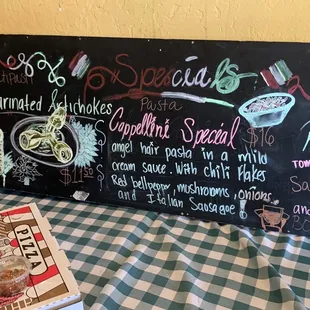 Specials
Pasta
Marinated Artichokes
$11.50
Cappellini Special
$16
angel hair pasta in a mild
cream sauce. With chili flakes
Red bellpepper, mushrooms, onions
and Italian Sausage!
PIZZA